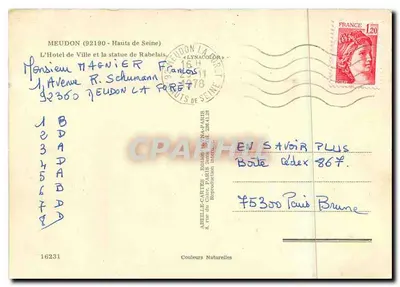 MEUDON (92190 - Hauts de Seine)
L'Hotel de Ville et la statue de Rabelais
"LYNACOLOR"
Monsieur MAGNIER Francis
1, Avenue R. Schumann
92360 MEUDON LA FORET
1 B
2 D
3 A
4 D
5 A
6 B
7 D
8 D
MEUDON LA FORET
1978
HTS DE SEINE
FRANCE
1,20
EN SAVOIR PLUS
Boite
867.
75300 Paris Brune
ABEILLE-CARTES
PARIS
16231
Couleurs Naturelles